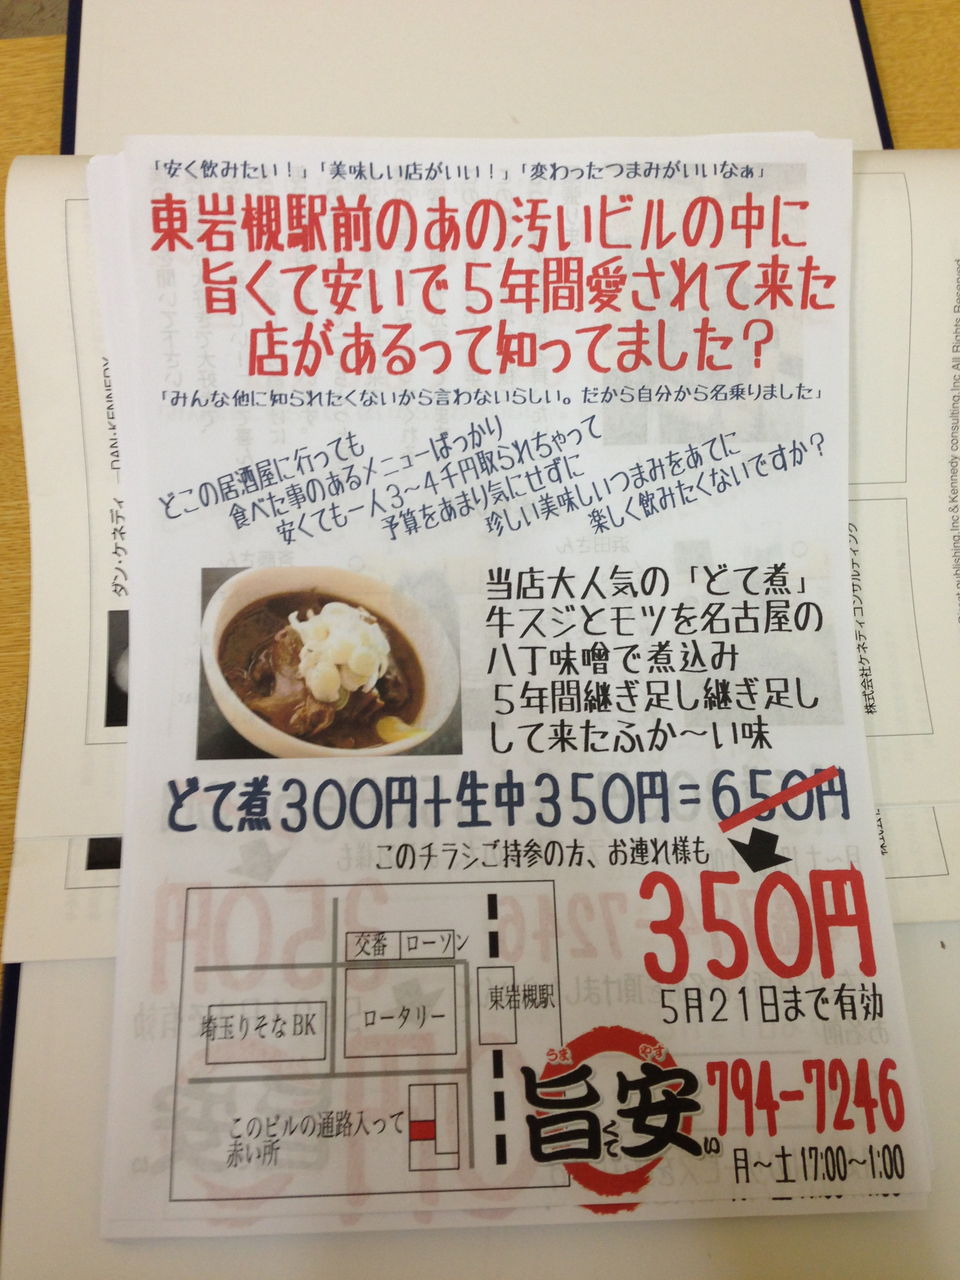 「安く飲みたい！」「美味しい店がいい！」「変わったつまみがいいなぁ」
東岩槻駅前のあの汚いビルの中に
旨くて安いで５年間愛されて来た
店があるって知ってました？
「みんな他に知られたくないから言わないらしい。だから自分から名乗りました」
どこの居酒屋に行っても
食べた事のあるメニューばっかり
安くても一人３～４千円取られちゃって
予算をあまり気にせずに
珍しい美味しいつまみをあてに
楽しく飲みたくないですか？
当店大人気の「どて煮」
牛スジとモツを名古屋の
八丁味噌で煮込み
５年間継ぎ足し継ぎ足し
して来たふか～い味
どて煮３００円＋生中３５０円＝６５０円
このチラシご持参の方、お連れ様も
３５０円
５月２１日まで有効
交番 ローソン
東岩槻駅
埼玉りそなBK
ロータリー
このビルの通路入って
赤い所
うま やす
旨くて安い
794-7246
月～土 17:00～1:00
ダン・ケネディ —DAN・KENNEDY
株式会社ケネディコンサルティング
publishing,Inc & Kennedy consulting,Inc All Rights Reserved